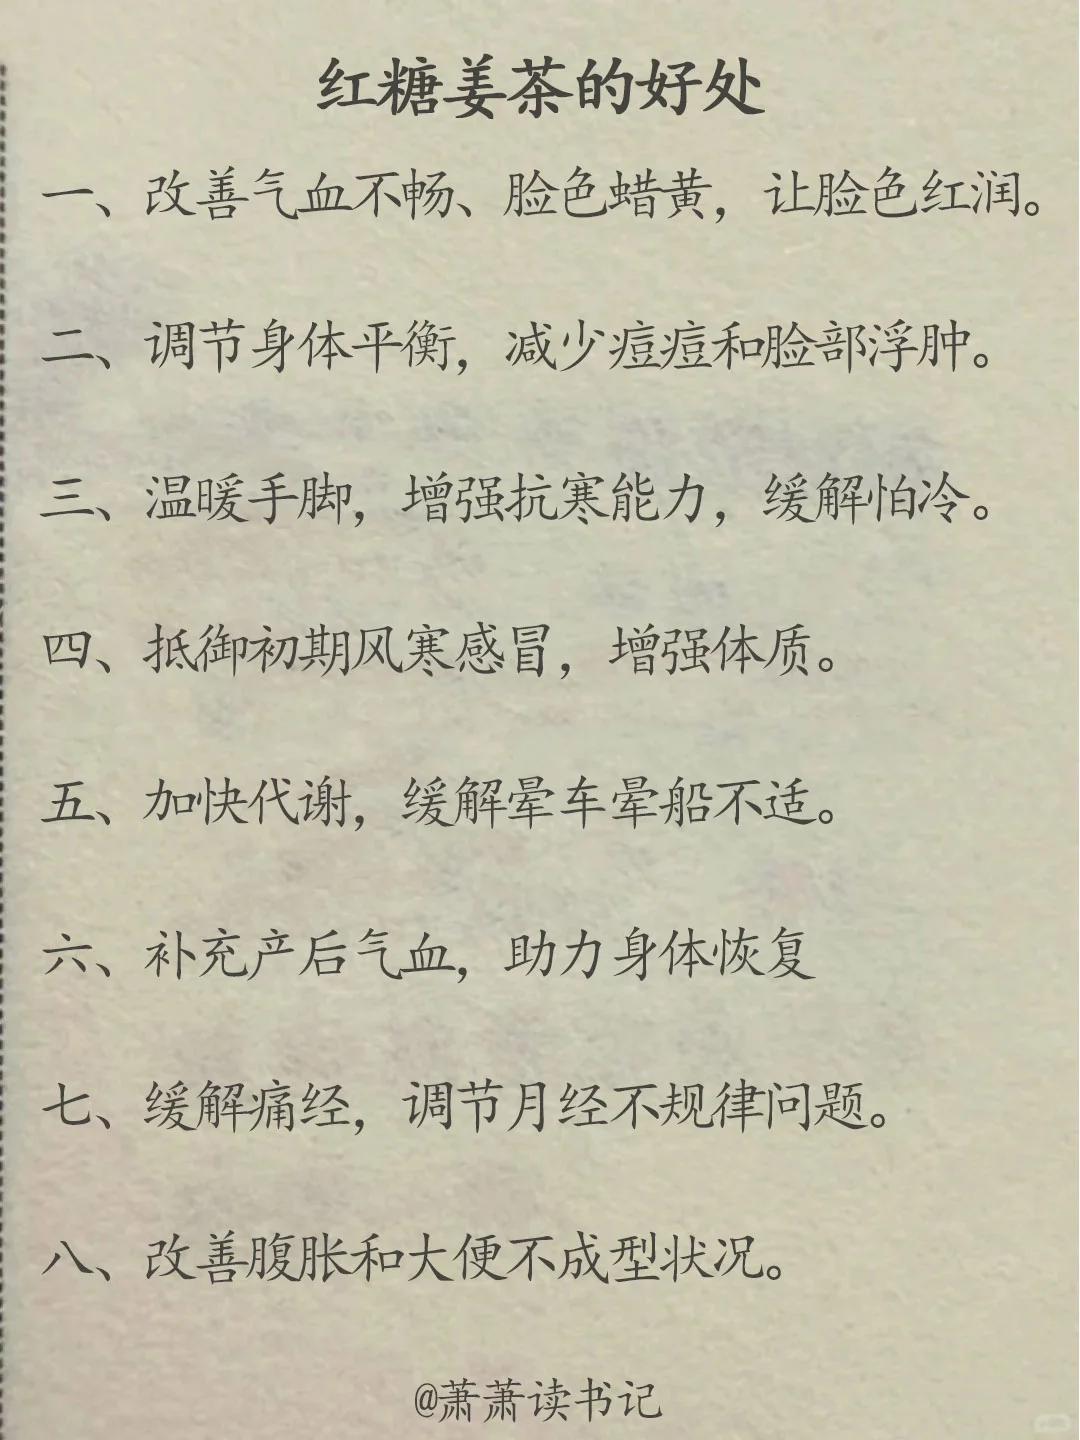 红糖姜茶的好处
一、改善气血不畅、脸色蜡黄，让脸色红润。
二、调节身体平衡，减少痘痘和脸部浮肿。
三、温暖手脚，增强抗寒能力，缓解怕冷。
四、抵御初期风寒感冒，增强体质。
五、加快代谢，缓解晕车晕船不适。
六、补充产后气血，助力身体恢复
七、缓解痛经，调节月经不规律问题。
八、改善腹胀和大便不成型状况。
@萧萧读书记